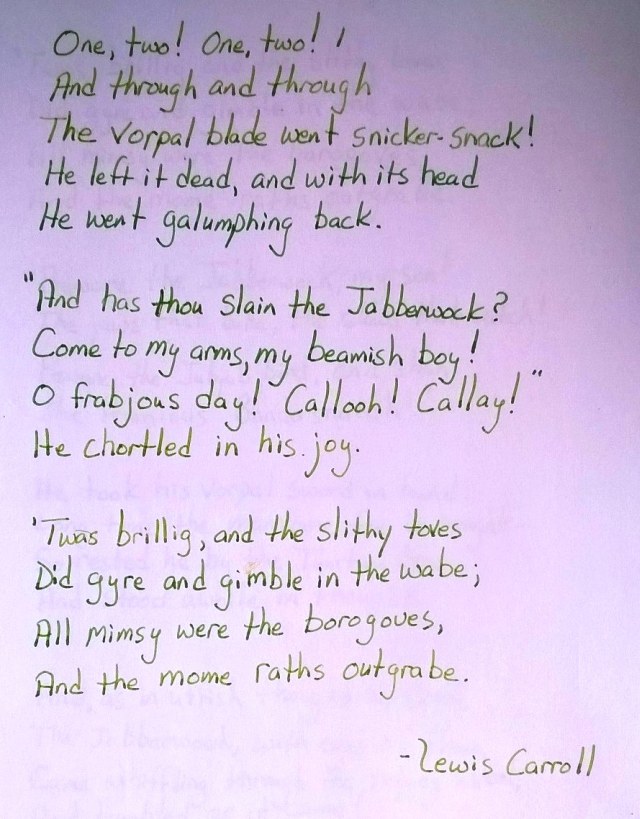 One, two! One, two!
And through and through
The Vorpal blade went snicker-snack!
He left it dead, and with its head
He went galumphing back.
"And has thou slain the Jabberwock?
Come to my arms, my beamish boy!
O frabjous day! Callooh! Callay!"
He chortled in his joy.
'Twas brillig, and the slithy toves
Did gyre and gimble in the wabe;
All mimsy were the borogoves,
And the mome raths outgrabe.
-Lewis Carroll